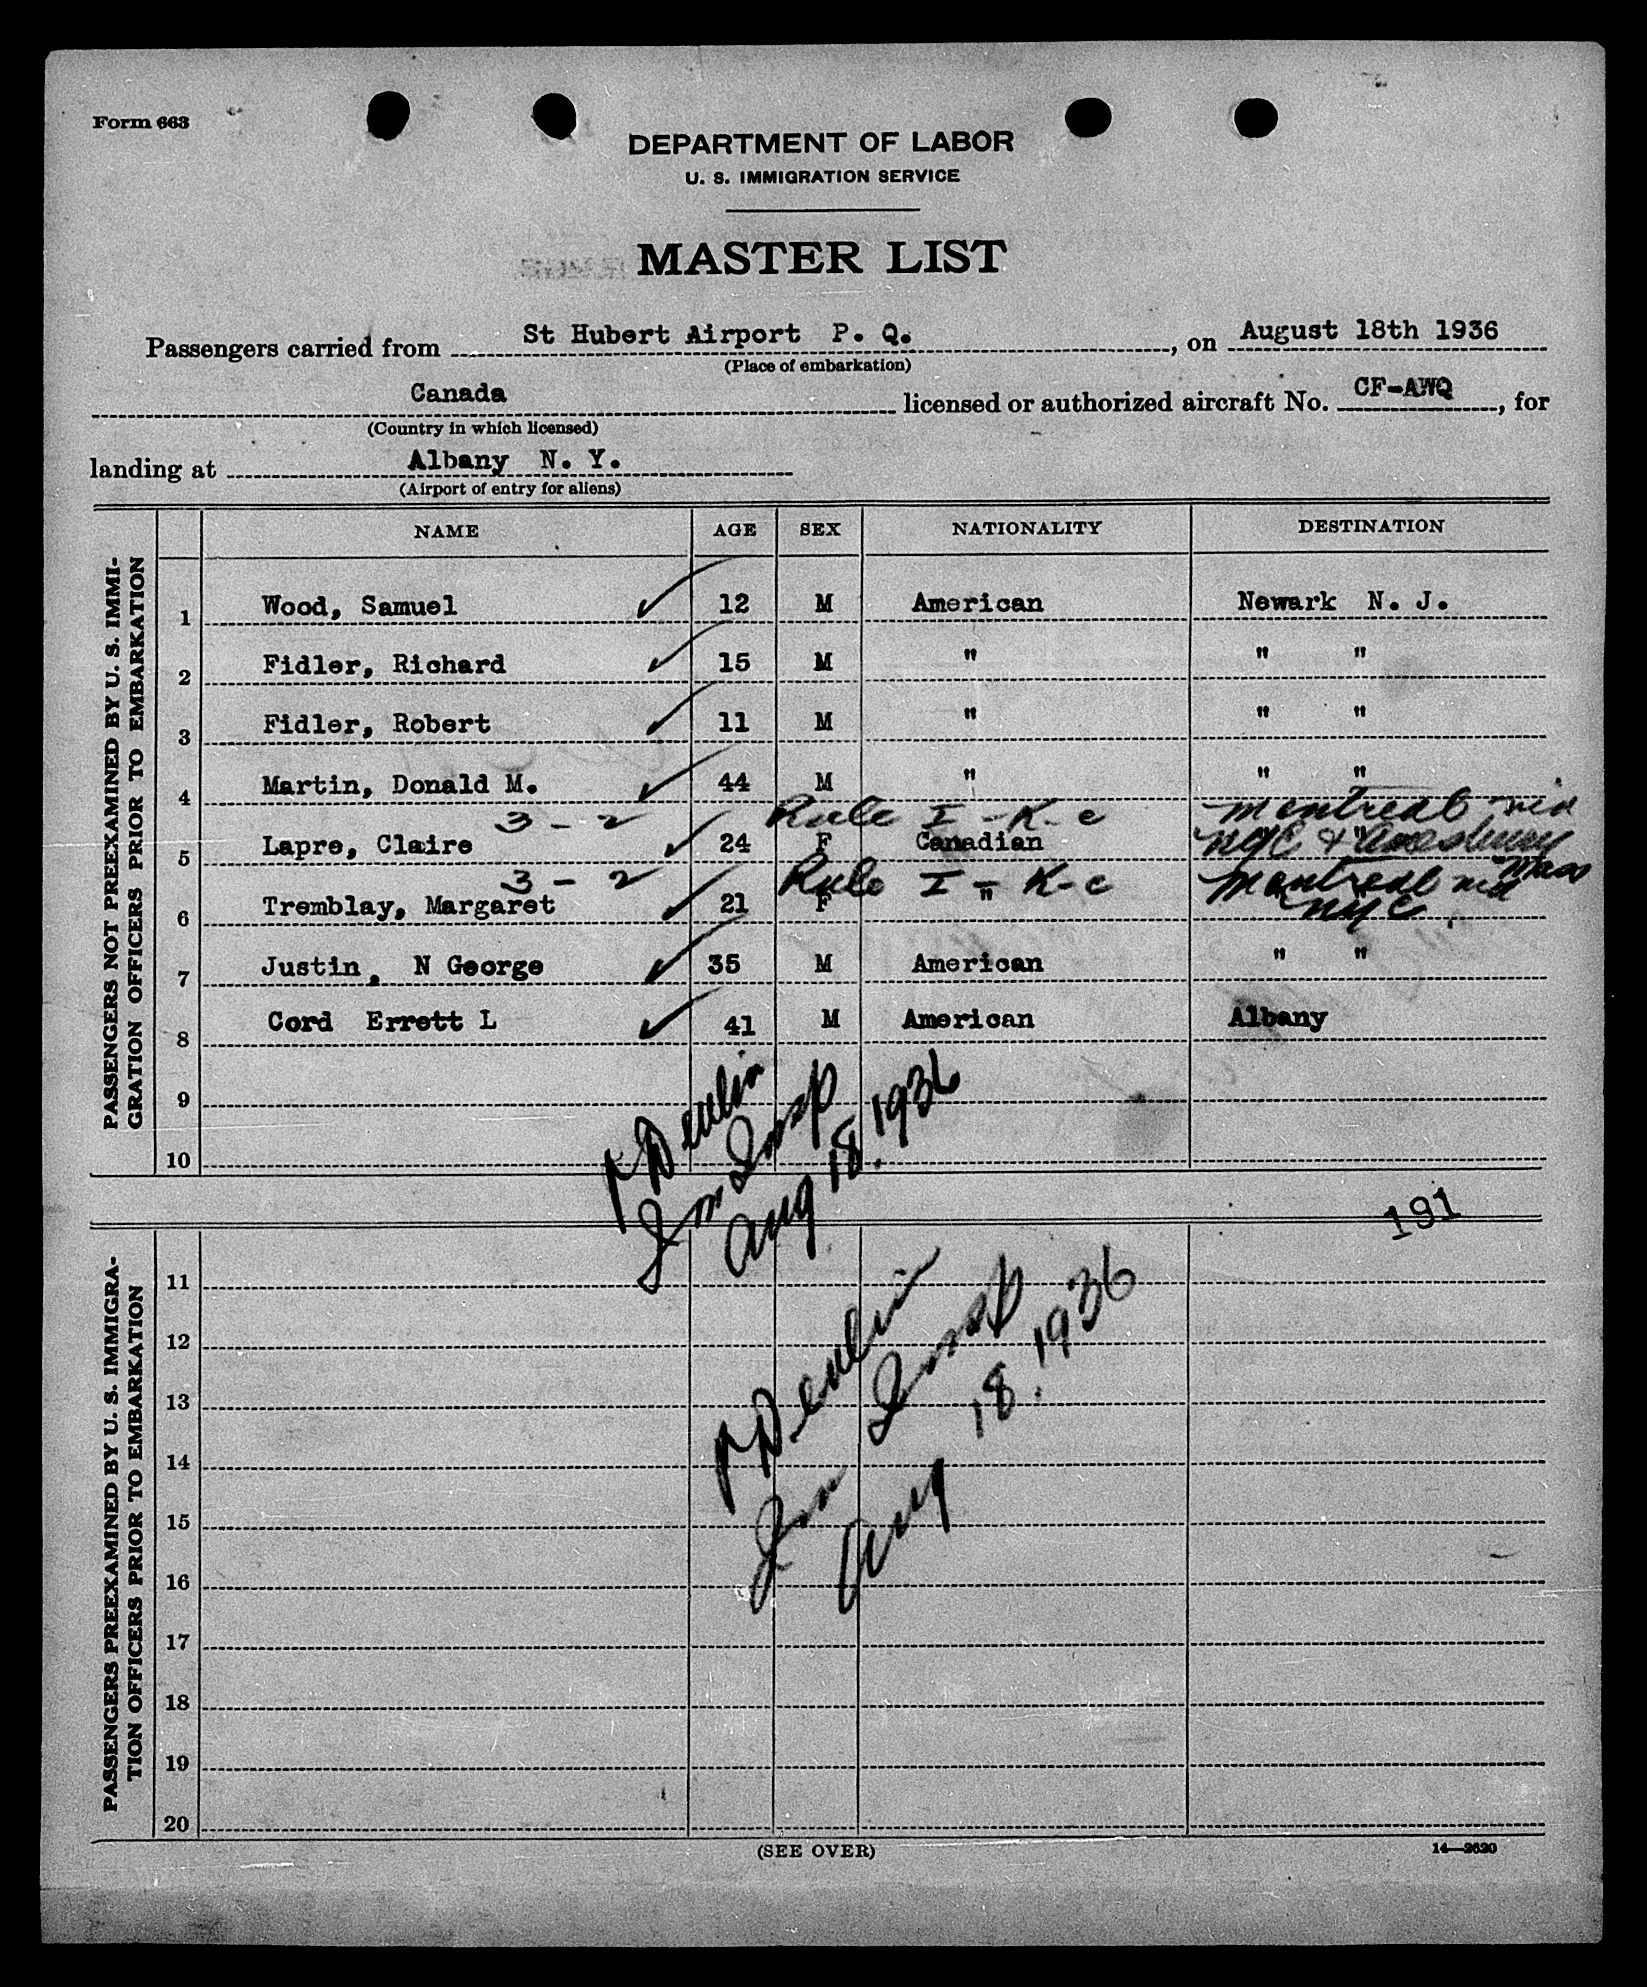 Form 663
DEPARTMENT OF LABOR
U. S. IMMIGRATION SERVICE
MASTER LIST
Passengers carried from St Hubert Airport P. Q., on August 18th 1936
(Place of embarkation)
Canada licensed or authorized aircraft No. CF-AWQ, for
(Country in which licensed)
landing at Albany N. Y.
(Airport of entry for aliens)
NAME AGE SEX NATIONALITY DESTINATION
PASSENGERS NOT PREEXAMINED BY U. S. IMMI-
GRATION OFFICERS PRIOR TO EMBARKATION
1 Wood, Samuel 12 M American Newark N. J.
2 Fidler, Richard 15 M " " "
3 Fidler, Robert 11 M " " "
4 Martin, Donald M. 44 M " " "
3 - 2 Rule I - K - c Montreal via
5 Lapre, Claire 24 F Canadian " NYC & Amesbury
Mass
3 - 2 Rule I - K - c Montreal via
6 Tremblay, Margaret 21 F " NYC
7 Justin, N George 35 M American " "
8 Cord Errett L 41 M American Albany
9
10
P Devlin
Imm Insp
Aug 18. 1936
191
PASSENGERS PREEXAMINED BY U. S. IMMIGRA-
TION OFFICERS PRIOR TO EMBARKATION
11
12
13
14
15
16
17
18
19
20
P Devlin
Imm Insp
Aug 18. 1936
(SEE OVER)
14—2620